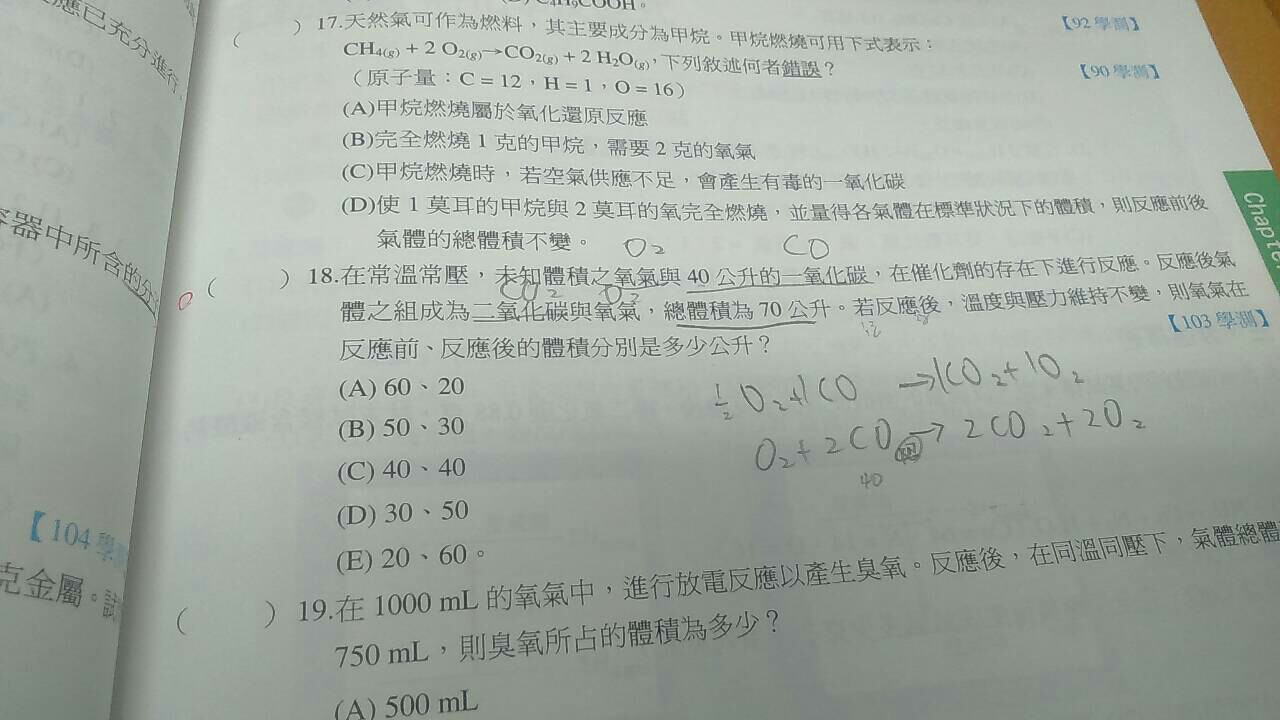 應已充分進行,
【92 學測】
) 17.天然氣可作為燃料,其主要成分為甲烷。甲烷燃燒可用下式表示:
CH4(g) + 2 O2(g)→CO2(g) + 2 H2O(g),下列敘述何者錯誤?
【90 學測】
(原子量:C = 12,H = 1,O = 16)
(A)甲烷燃燒屬於氧化還原反應
(B)完全燃燒 1 克的甲烷,需要 2 克的氧氣
(C)甲烷燃燒時,若空氣供應不足,會產生有毒的一氧化碳
(D)使 1 莫耳的甲烷與 2 莫耳的氧完全燃燒,並量得各氣體在標準狀況下的體積,則反應前後
氣體的總體積不變。
O2 CO
容器中所含的分
( ) 18.在常溫常壓,未知體積之氧氣與 40 公升的一氧化碳,在催化劑的存在下進行反應。反應後氣
CO2 O2
體之組成為二氧化碳與氧氣,總體積為 70 公升。若反應後,溫度與壓力維持不變,則氧氣在
反應前、反應後的體積分別是多少公升?
【103 學測】
(A) 60、20
(B) 50、30
(C) 40、40
(D) 30、50
(E) 20、60。
1/2 O2+1CO →1CO2+1O2
O2+2CO → 2CO2+2O2
40
【104 學
克金屬。
( ) 19.在 1000 mL 的氧氣中,進行放電反應以產生臭氧。反應後,在同溫同壓下,氣體總體
750 mL,則臭氧所占的體積為多少?
(A) 500 mL